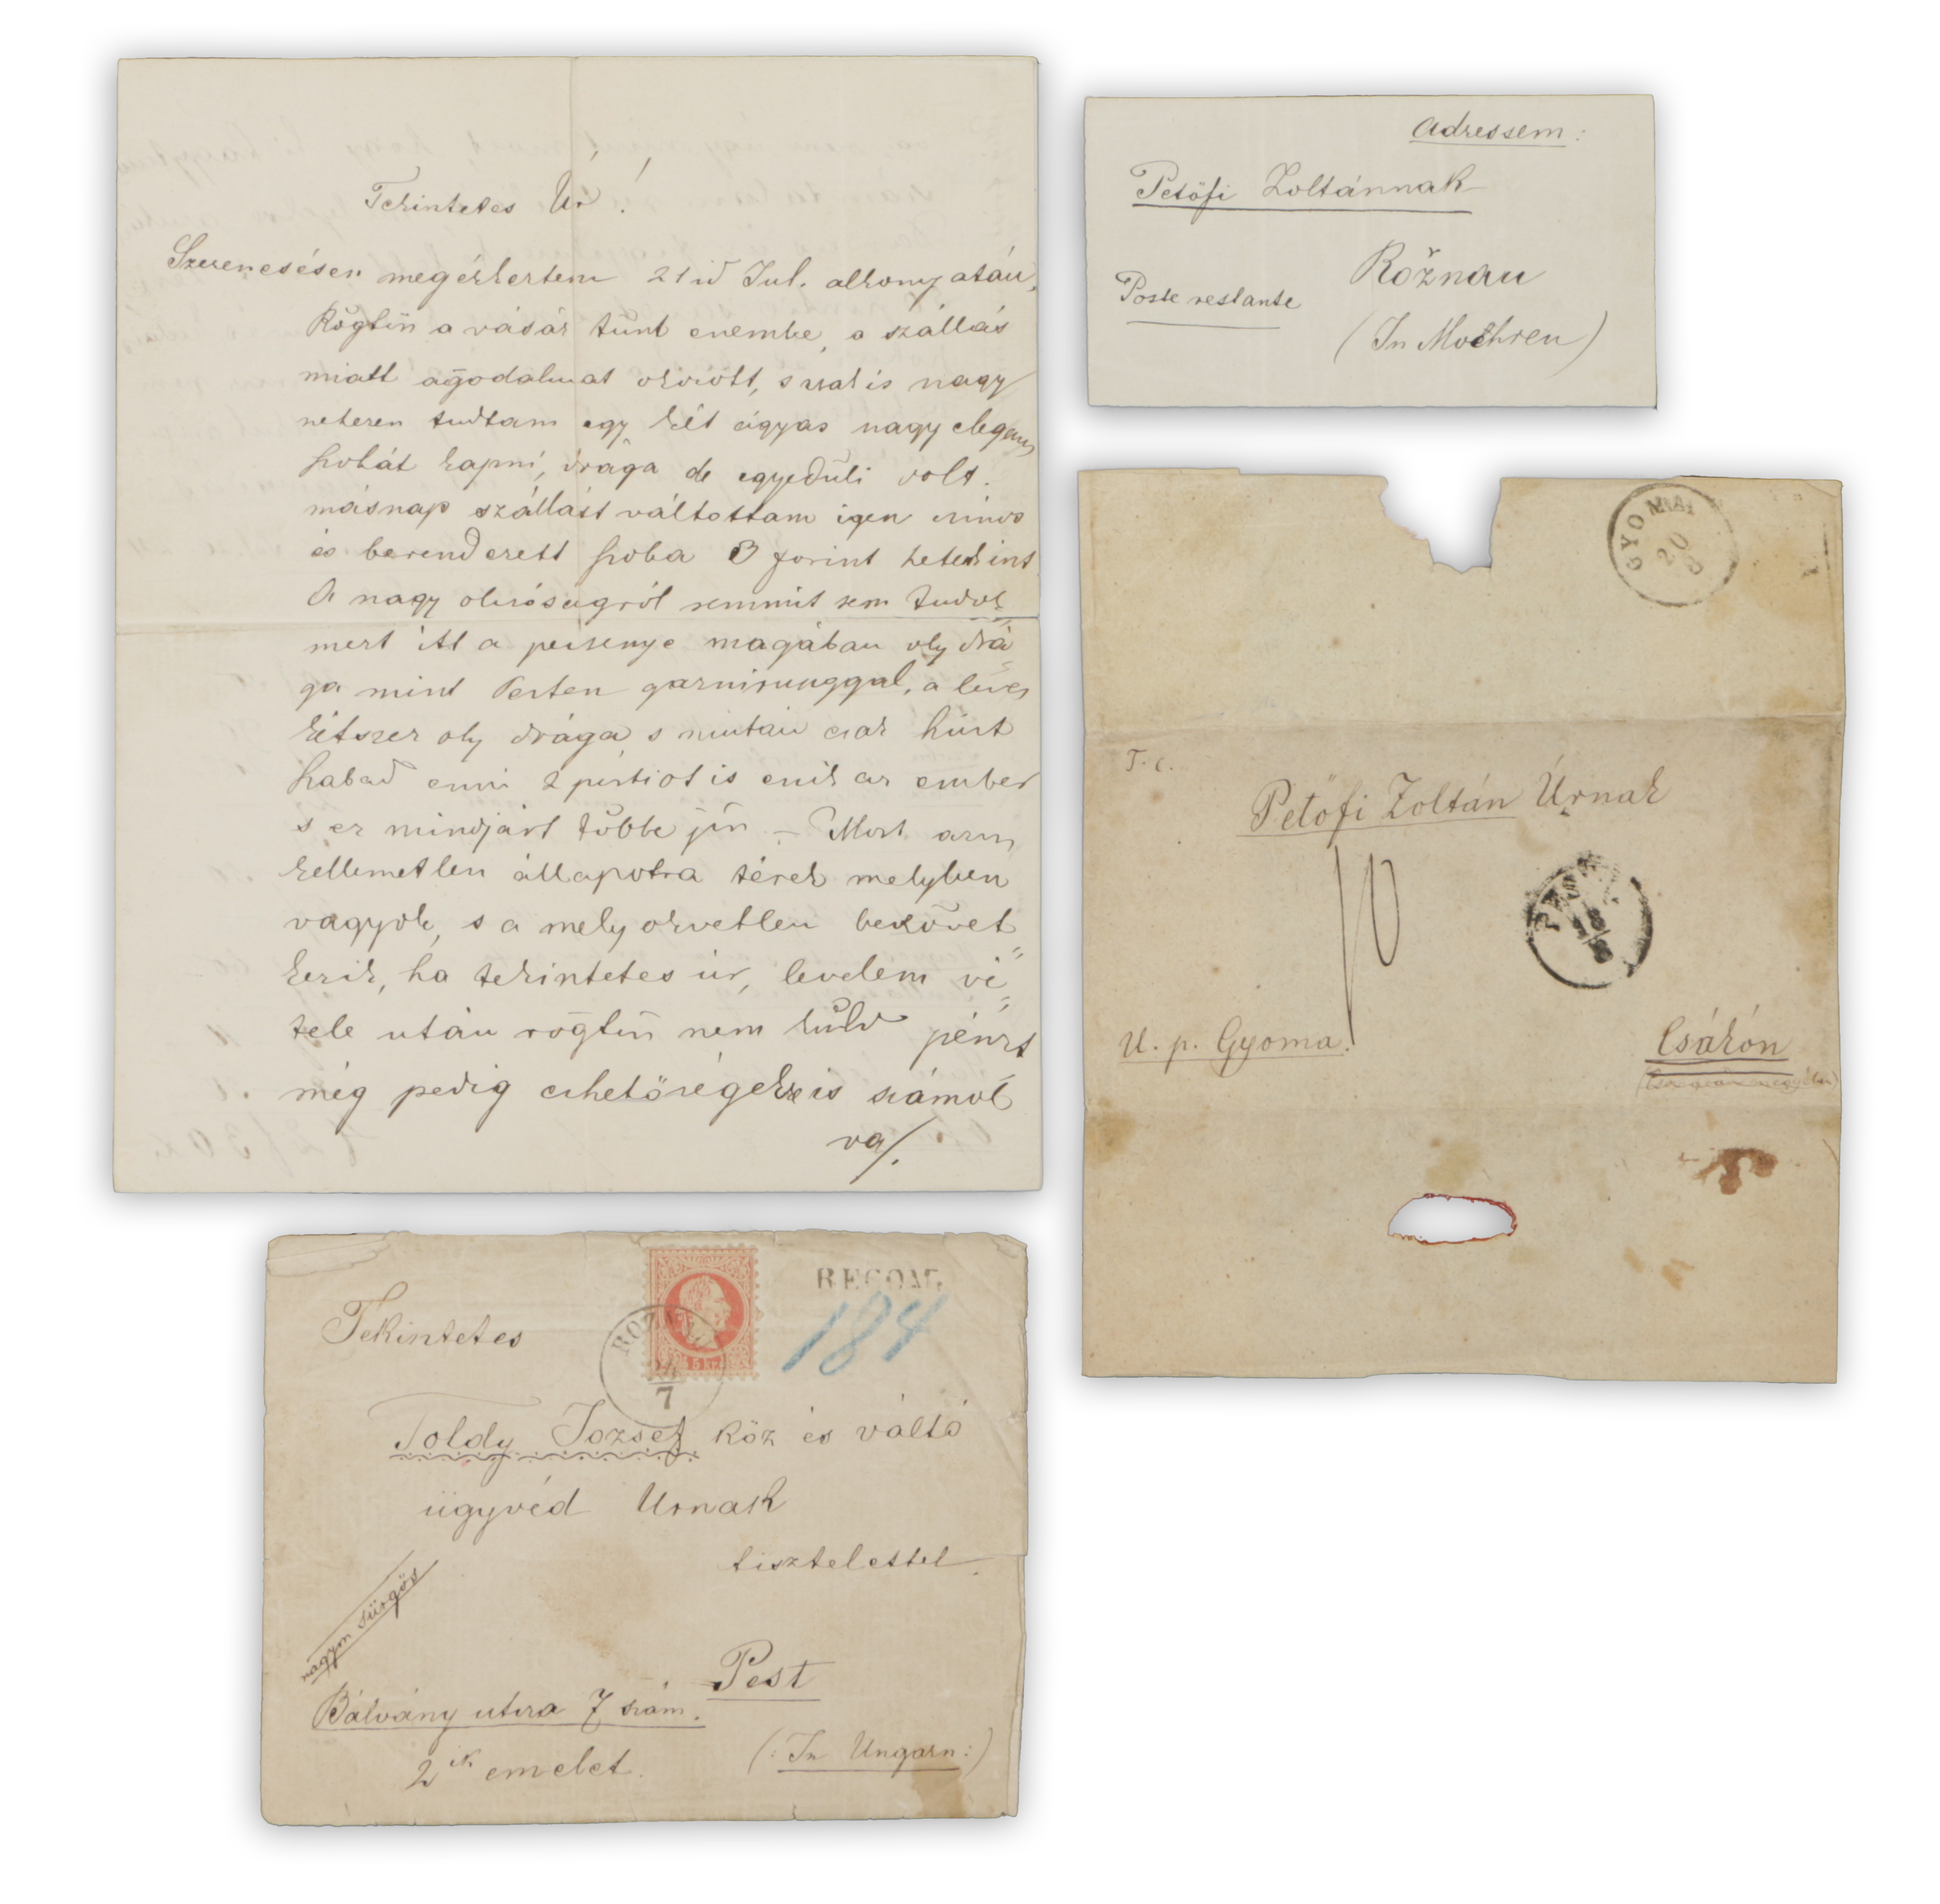 Tekintetes Úr!
Szerencsésen megérkertem 21id Jul. alkonyatán,
Rögtön a vásár tünt enembe, a szállás
miatt agodalmat okozott, s csak is nagy
neheren tudtam egy két ágyas nagy elegans
szobát kapni, drága de egyedüli volt.
másnap szállást váltottam igen csinos
és berenderett szoba 3 forint hetekint
A nagy olcsóságról semmit sem tudok
mert itt a pecsenye magában oly drá
ga mint Pesten garnirunggal, a leves
kétszer oly drága s miután csak húst
szabad enni 2 portiot is enik az ember
s ez mindjárt többe jön – Most azon
kellemetlen állapotra térek melyben
vagyok, s a mely okvetlen bekövet
kezik, ha tekintetes úr, levelem vé
tele után rögtön nem küld pénzt
még pedig eshetőségekre is számol
va/.
Adressem:
Petőfi Zoltánnak
Rožnau
Poste restante
(In Moehren)
GYOMA
20
8
T. c.
Petőfi Zoltán Úrnak
10
PEST
18
8
U. p. Gyoma.
Csákón
RECOM.
184
Tekintetes
5 kr
7
Toldy Jozsef köz és váltó
ügyvéd Urnak
tisztelettel.
nagyon sürgős
Pest
Bálvány utcza 7 szám.
(: In Ungarn:)
2ik emelet.